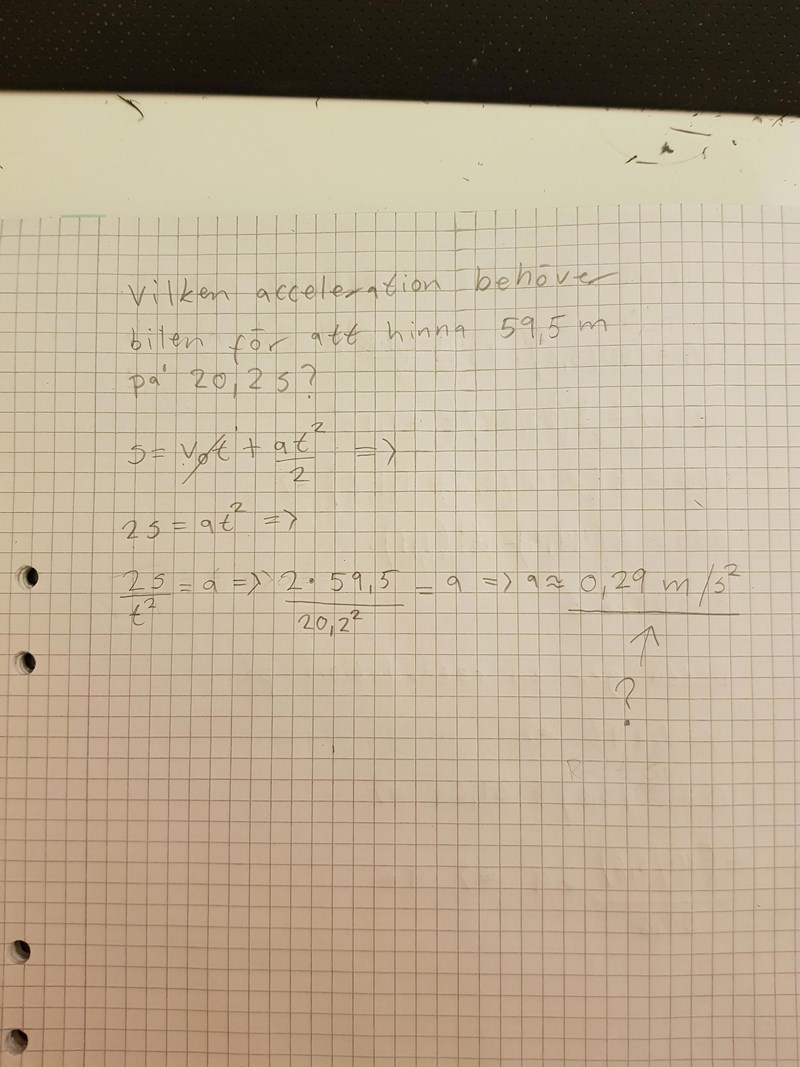 Vilken acceleration behöver
bilen för att hinna 59,5 m
på 20,2 s?
s = v₀t + at²/2 =>
2s = at² =>
2s/t² = a => 2·59,5/20,2² = a => a ≈ 0,29 m/s²
↑
?